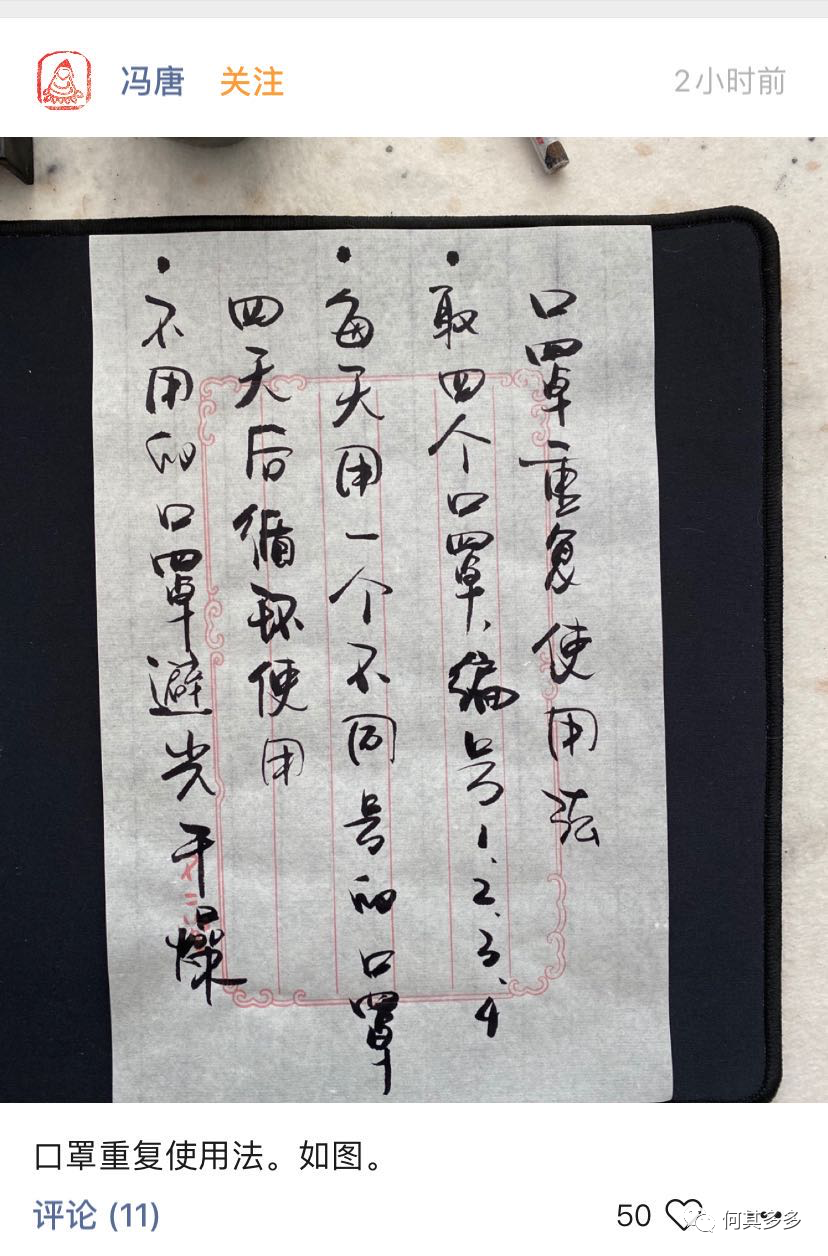 冯唐 关注 2小时前
口罩重复使用法
•取四个口罩,编号1、2、3、4
•每天用一个不同号的口罩
四天后循环使用
•不用的口罩避光干燥
口罩重复使用法。如图。
评论 (11) 50
何其多多